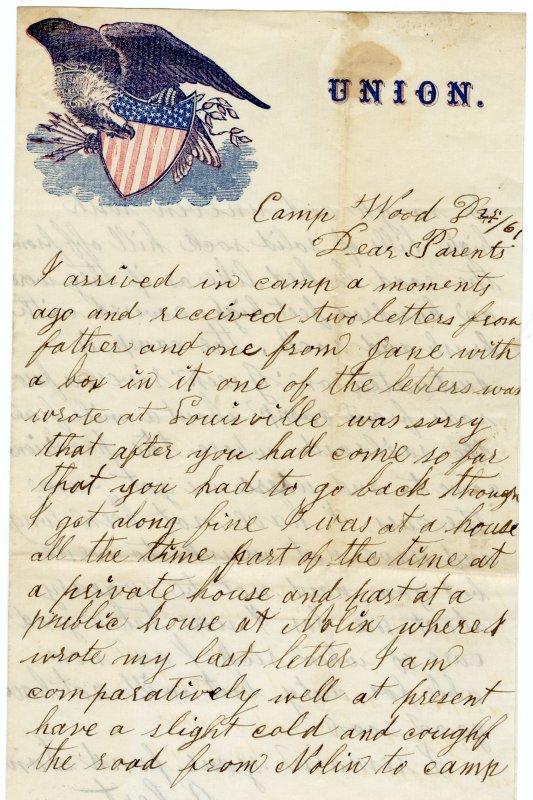 UNION.
Camp Wood D 25/61
Dear Parents
I arrived in camp a moments
ago and received two letters from
father and one from Jane with
a box in it one of the letters was
wrote at Louisville was sorry
that after you had come so far
that you had to go back though
I got along fine I was at a house
all the time part of the time at
a private house and part at a
public house at Nolin where I
wrote my last letter I am
comparatively well at present
have a slight cold and cough
the road from Nolin to camp